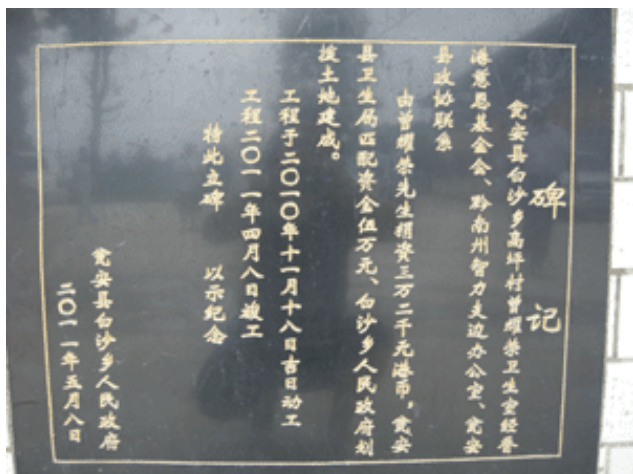 碑 记
瓮安县白沙乡高坪村曾耀荣卫生室经香
港慈恩基金会、黔南州智力支边办公室、瓮安
县政协联系
由曾耀荣先生捐资三万二千元港币，瓮安
县卫生局匹配资金伍万元、白沙乡人民政府划
拨土地建成。
工程于二〇一〇年十一月十八日吉日动工
工程二〇一一年四月八日竣工
特此立碑 以示纪念
瓮安县白沙乡人民政府
二〇一一年五月八日